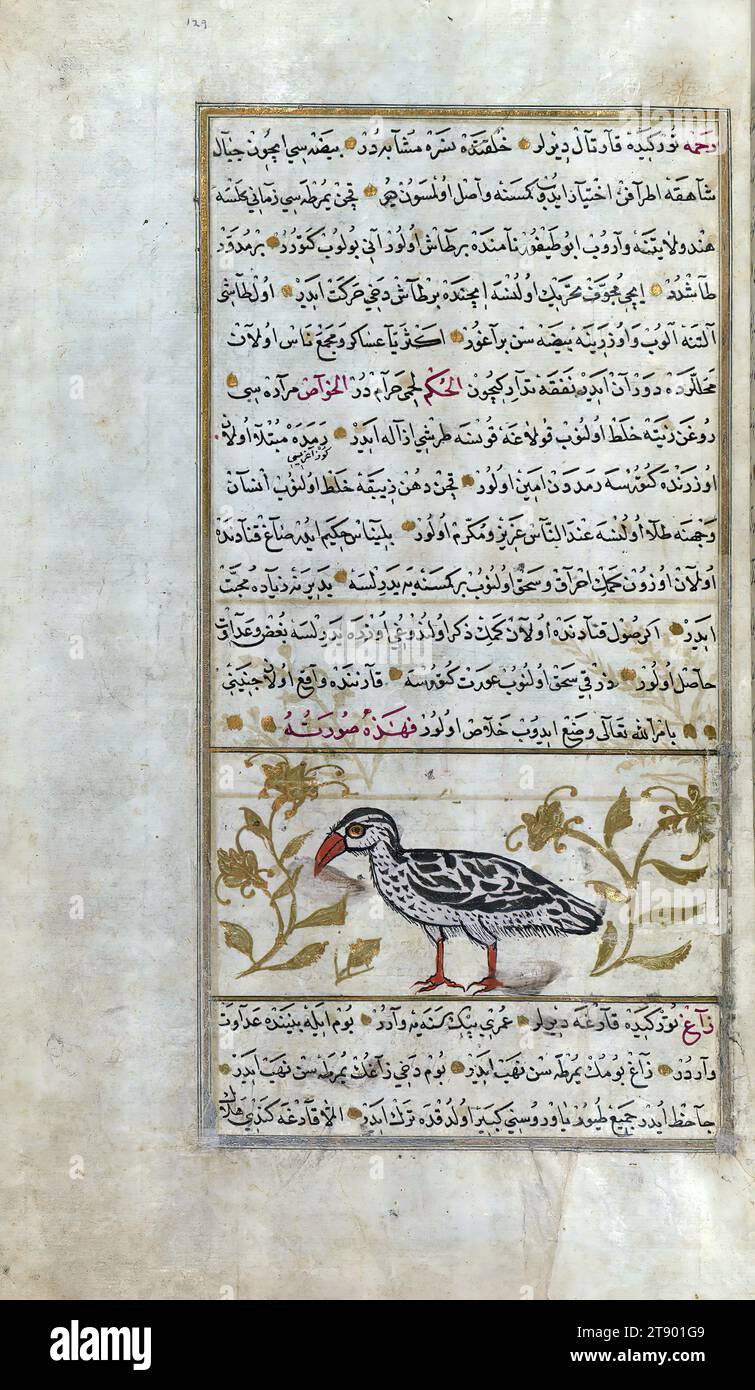 129
رحمه توركیده قارتال دیرلر خلقتده نسره مشابه در بیضه سی ایچون جبال
شاهقه اطرافن اختیار ایدوب كمسنه واصل اولسون دیو قچن یمرطه سی زمانی كلسه
هند ولایتنه واروب ابو طیفور نامنده بر طاش اولور آنی بولوب كتورر بر مدور
طاشدر ایچی مجوف تحریك اولنسه ایچنده بر طاش دخی حركت ایدر اول طاشی
آلتنه آلوب و اوزرینه بیضه سن براغور اكثریا عساكر و مجمع ناس اولان
محللرده دوران ایدر نفقه تداركیچون الحكم لحمی حرام در الخواص مراره سی
روغن زیته خلط اولنوب قولاغه قونسه طرشی ازاله ایدر رمده مبتلا اولان
كوز اغریسی
اوزرنده كتورسه رمددن امین اولور قچن دهن زیبقه خلط اولنوب انسان
وجهنه طلا اولنسه عند الناس عزیز و مكرم اولور بلیناس حكیم ایدر صاغ قنادنده
اولان اوزون كمك احراق و سحق اولنوب بر كمسنه یه یدرلسه یدیرنه زیاده محبت
ایدر اكر صول قنادنده اولان كمك ذكر اولندوغی اوزره یدرلسه بغض و عداوت
حاصل اولور ذرقی سحق اولنوب عورت كتورسه قارننده واقع اولان جنینی
بامر الله تعالی وضع ایدوب خلاص اولور فهذه صورته
زاغ توركیده قارغه دیرلر عمری بیك سنه یه وارر بوم ایله بیننده عداوت
واردر زاغ بومك یمرطه سن نهب ایدر بوم دخی زاغك یمرطه سن نهب ایدر
جاحظ ایدر جمیع طیور یاوروسنی كبیر اولدقده ترك ایدر الا قارغه كندی هلاك
alamy
Image ID: 2T901G9
www.alamy.com